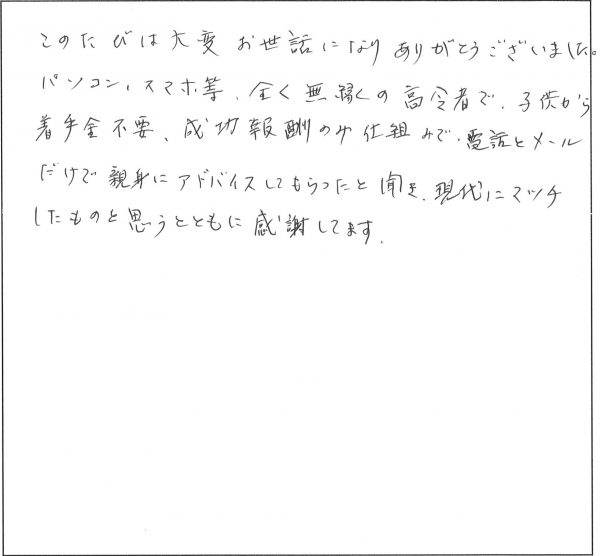 このたびは大変お世話になりありがとうございました。
パソコン、スマホ等、全く無縁の高令者で、子供から
着手金不要、成功報酬のみ仕組みで、電話とメール
だけで親身にアドバイスしてもらったと聞き、現代にマッチ
したものと思うとともに感謝してます。